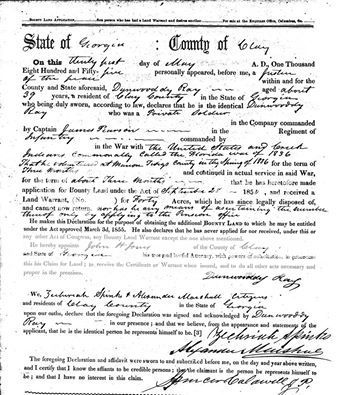 BOUNTY LAND APPLICATION.
State of Georgia : County of Clay
On this thirty first day of May A. D., One Thousand
Eight Hundred and Fifty-five personally appeared before me, a Justice
of the peace within and for the
County and State aforesaid, Dunwoddy Ray aged about
39 years, a resident of Clay Country in the State of Georgia
who being duly sworn, according to law, declares that he is the identical Dunwoddy
Ray who was a Private Soldier
in the Company commanded
by Captain James in the Regiment of
Infantry commanded by
in the War with the United States and Creek
Indians Commonly Called the Florida war of 1836
That he volunteered at County in the Spring of 1836 for the term of
Three Months and continued in actual service in said War,
for the term of about Three Months that he has heretofore made
application for Bounty Land under the Act of September 28 1850, and received a
Land Warrant, (No. ) for Forty Acres, which he has since legally disposed of,
and cannot now return, nor has he any means of ascertaining the number
thereof only by applying to the Pension office
He makes this Declaration for the purpose of obtaining the additional BOUNTY LAND to which he may be entitled
under the Act approved March 3d, 1855. He also declares that he has never applied for nor received, under this or any
other Act of Congress, any Bounty Land Warrant except the one above mentioned.
He hereby appoints John H Jones of the County of Clay
and State of Georgia his true and lawful Attorney, with power of substitution, to prosecute
his Claim for Land; to receive the Certificate or Warrant when issued, and to do all other acts necessary and
proper in the premises.
Dunwoddy Ray
We, Zechriah Spinks & Alexander Marshall Citizens
and residents of Clay Country in the State of Georgia
upon our oaths, declare that the foregoing Declaration was signed and acknowledged by Dunwoddy
Ray in our presence; and that we believe, from the appearance and statements of the
applicant, that he is the identical person he represents himself to be. [3]
Zechriah Spinks
Alexander Marshall
The foregoing Declaration and affidavit were sworn to and subscribed before me, on the day and year above written,
and I certify that I know the affiants to be credible persons; that the claimant is the person he represents himself to
be; and that I have no interest in this claim.
Caldwell J P